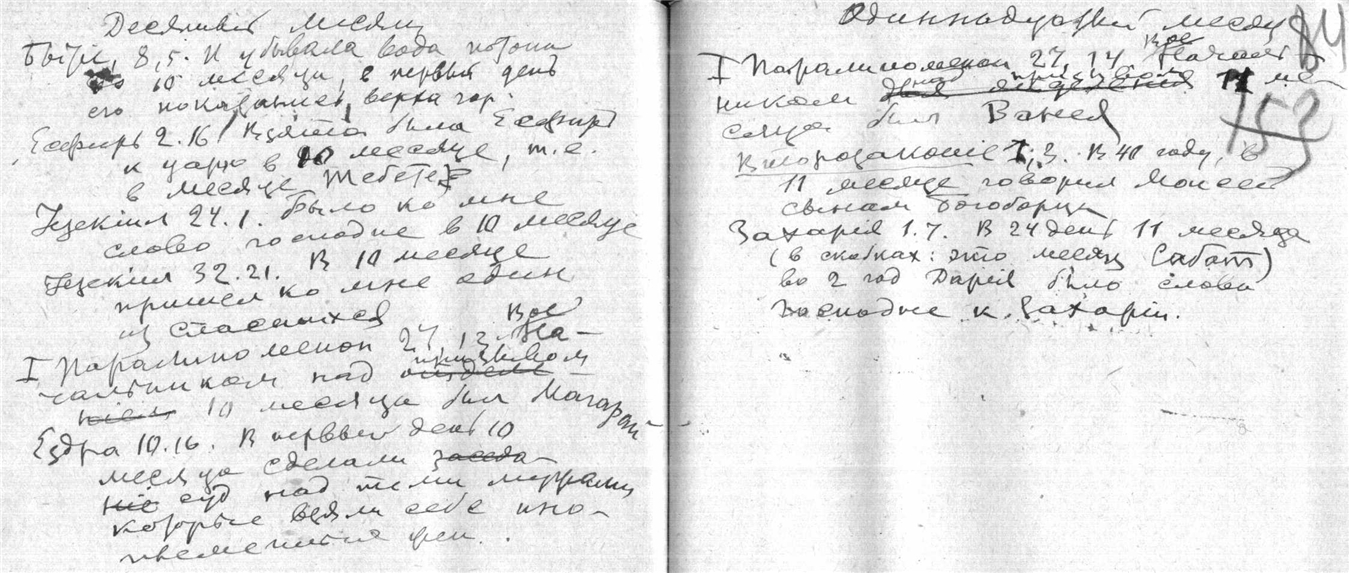 Десятый месяц
Бытіе, 8,5. И убывала вода потопа
до 10 месяца, в первый день
его показались верха гор.
Есфирь 2.16 Взята была Есфирь
к царю в 10 месяце, т.е.
в месяце Тебете
Іезекіил 24.1. Было ко мне
слово господне в 10 месяце
Іезекіил 32.21. В 10 месяце
пришел ко мне один
из спасшихся
I Паралипоменон 27,13 Вое На-
чальником над призывом отделе-
нием 10 месяца был Магарай
Ездра 10.16. В первый день 10
месяца сделали заседа-
ніе суд над теми мужьями
которые взяли себе ино-
племенных жен.
Одиннадцатый месяц
84
I Паралипоменон 27,14 Вое Началь
ником призыва 11 ме-
сяца был Ванея
153
Второзаконіе 1,3. В 40 году, в
11 месяце говорил Моисей
сынам богоборца
Захарія 1.7. В 24 день 11 месяца
(в скобках: это месяц Сабат)
во 2 год Дарія было слово
господне к Захаріи.